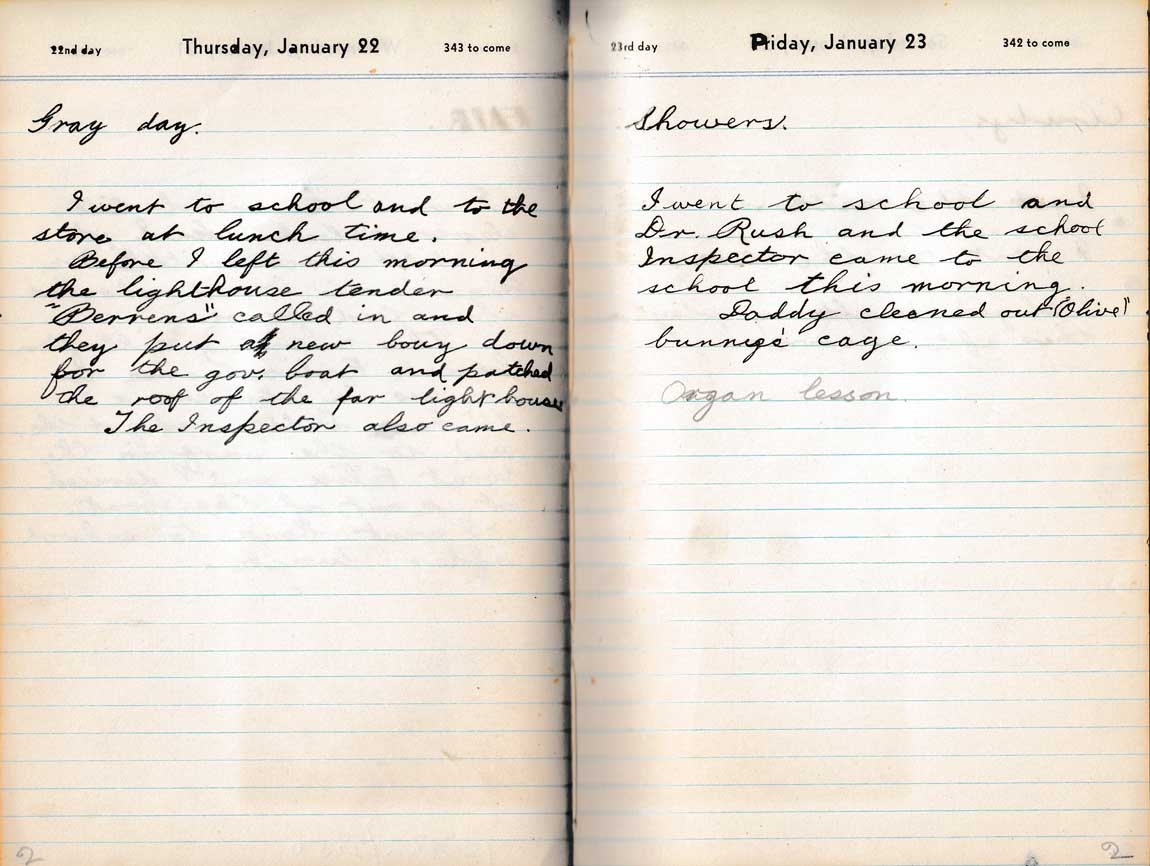 22nd day Thursday, January 22 343 to come
Gray day.
I went to school and to the
store at lunch time.
Before I left this morning
the lighthouse tender
"Berrens" called in and
they put a new bouy down
for the gov. boat and patched
the roof of the far lighthouse
The Inspector also came.
2
23rd day Friday, January 23 342 to come
Showers.
I went to school and
Dr. Rush and the school
Inspector came to the
school this morning.
Daddy cleaned out "Olive"
bunnys' cage.
Organ lesson.
2